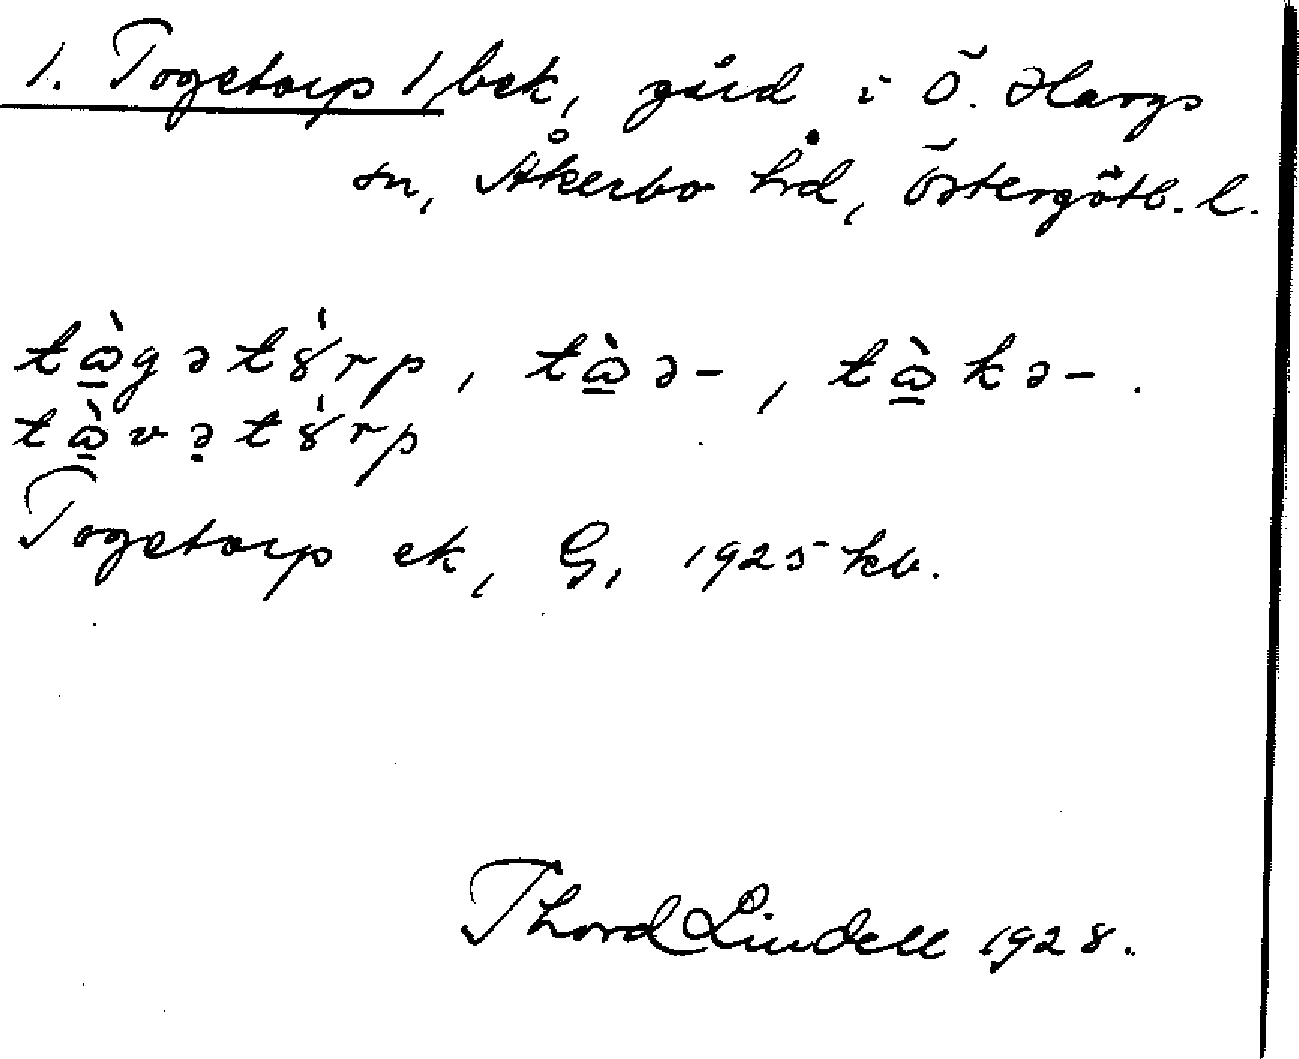 1. Togetorp 1, bek, gård i Ö. Hargs
sn, Åkerbo hd, Östergötl. l.
tɷ̠̀gətȣ́rp, tɷ̠̀ə-, tɷ̠̀kə-.
tɷ̠̀və̣tȣ́rp
Togetorp ek, G, 1925 kb.
Thord Lindell 1928.